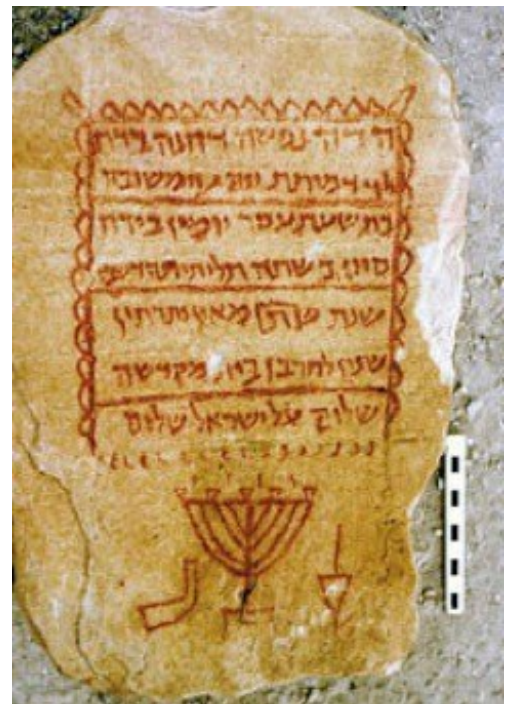 הדה נפשה דחנה ברת
דמיתת
בתשעת עסר יומין בירח
סיון בשתה תליתיתה
שנת מאין ותרתין
שנין לחרבן בית מקדשה
שלום על ישראל שלום